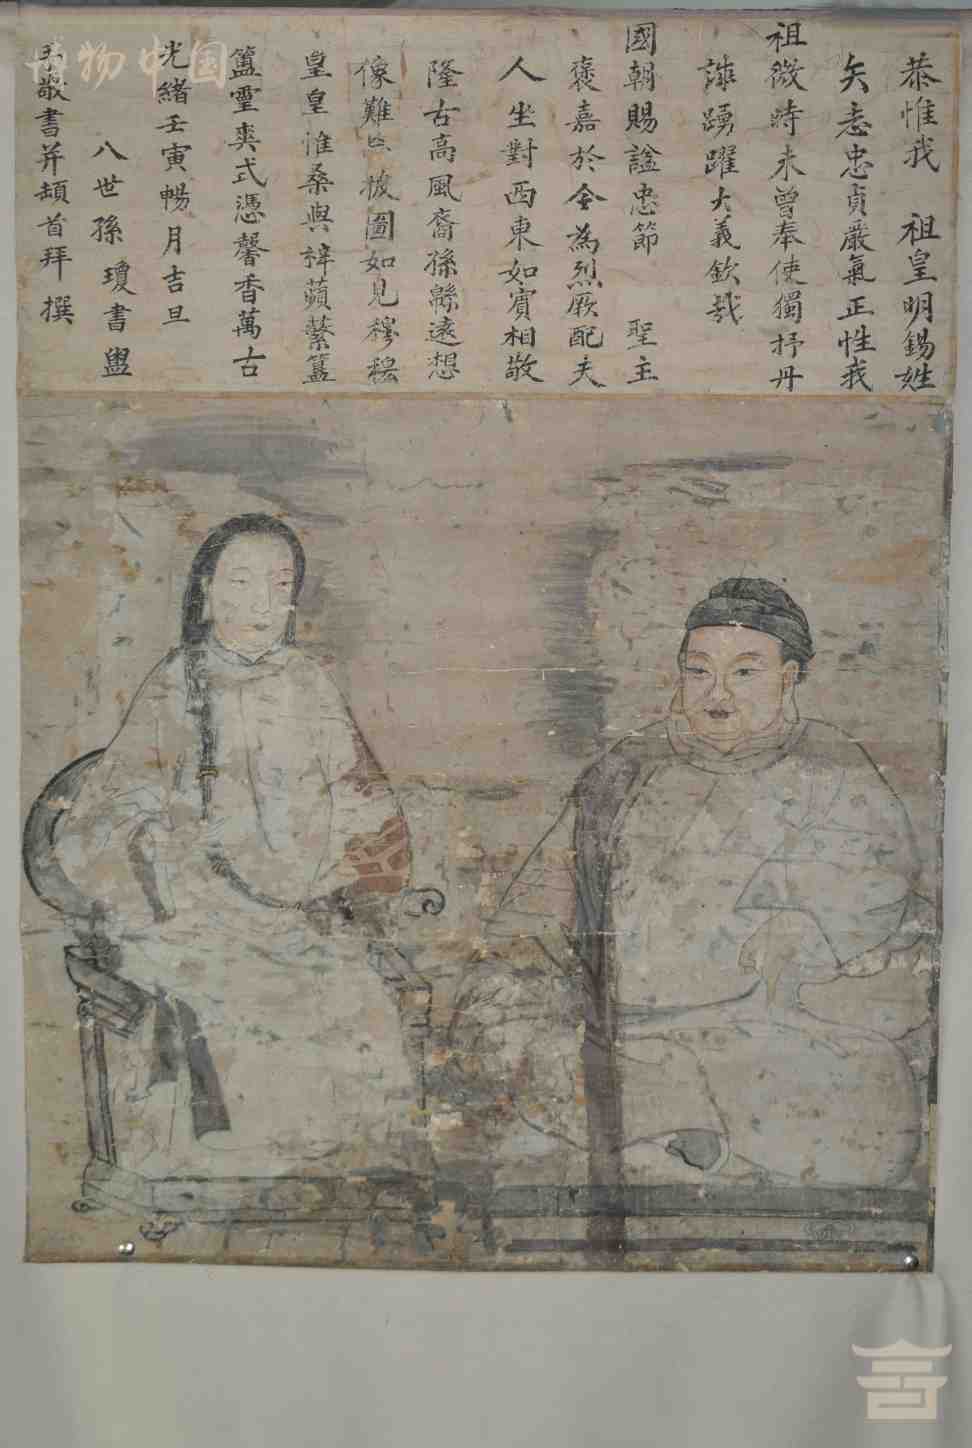 恭惟我 祖皇明錫姓
矢志忠貞嚴氣正性我
祖微時未曾奉使獨抒丹
誠踴躍大義欽哉
國朝賜諡忠節 聖主
褒嘉於今為烈厥配夫
人坐對西東如賓相敬
隆古高風裔孫緜遠想
像難 披圖如見穆穆
皇皇惟桑與梓蘋蘩簠
簋靈爽式憑馨香萬古
光緒壬寅暢月吉旦
八世孫 瓊書盥
手敬書并頓首拜撰
博物中国